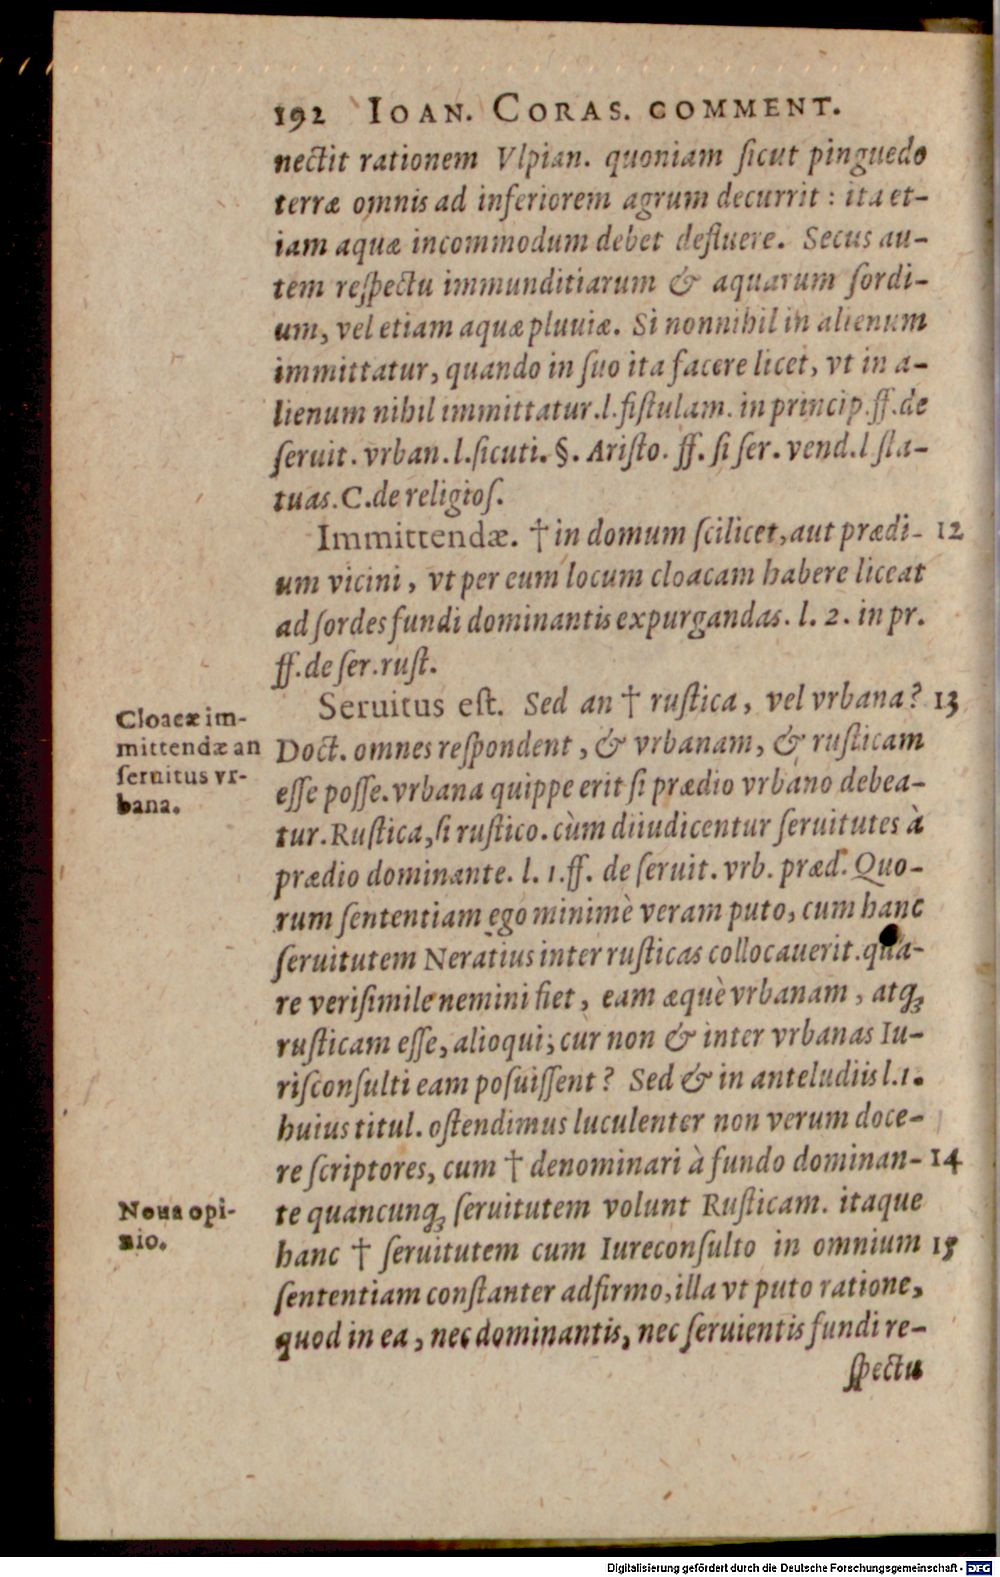 192 IOAN. CORAS. COMMENT.
nectit rationem Vlpian. quoniam ſicut pinguedo
terræ omnis ad inferiorem agrum decurrit : ita et-
iam aquæ incommodum debet defluere. Secus au-
tem reſpectu immunditiarum & aquarum ſordi-
um, vel etiam aquæ pluuiæ. Si nonnihil in alienum
immittatur, quando in ſuo ita facere licet, vt in a-
lienum nihil immittatur.l.fiſtulam. in princip.ff.de
ſeruit. vrban.l.ſicuti. §. Ariſto. ff. ſi ſer. vend.l ſta-
tuas. C.de religioſ.
Immittendæ. † in domum ſcilicet, aut prædi- 12
um vicini, vt per eum locum cloacam habere liceat
ad ſordes fundi dominantis expurgandas. l. 2. in pr.
ff.de ſer.ruſt.
Seruitus eſt. Sed an † ruſtica, vel vrbana? 13
Cloacæ im-
mittendæ an
ſeruitus vr-
bana.
Doct. omnes reſpondent, & vrbanam, & ruſticam
eſſe poſſe. vrbana quippe erit ſi prædio vrbano debea-
tur. Ruſtica, ſi ruſtico. cùm diiudicentur ſeruitutes à
prædio dominante. l. 1.ff. de ſeruit. vrb. præd. Quo-
rum ſententiam ego minimè veram puto, cum hanc
ſeruitutem Neratius inter ruſticas collocauerit. qua-
re veriſimile nemini fiet, eam æquè vrbanam, atqꝫ
ruſticam eſſe, alioqui; cur non & inter vrbanas Iu-
riſconſulti eam poſuiſſent? Sed & in anteludiis l.1.
huius titul. oſtendimus luculenter non verum doce-
re ſcriptores, cum † denominari à fundo dominan- 14
te quancunqꝫ ſeruitutem volunt Ruſticam. itaque
Noua opi-
nio.
hanc † ſeruitutem cum Iureconſulto in omnium 15
ſententiam conſtanter adfirmo, illa vt puto ratione,
quod in ea, nec dominantis, nec ſeruientis fundi re-
ſpectu
Digitalisierung gefördert durch die Deutsche Forschungsgemeinschaft - DFG